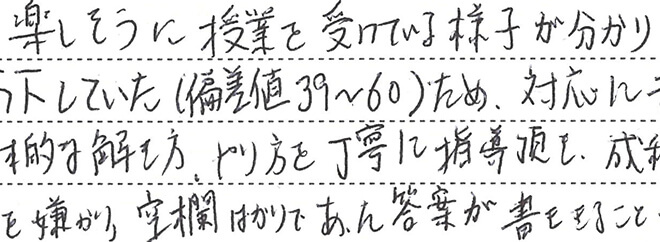 楽しそうに授業を受けている様子が分かり
下していた(偏差値39~60)ため、対応に
的な解き方、やり方を丁寧に指導頂き、成
を嫌がり、空欄ばかりであった答案が書ききること